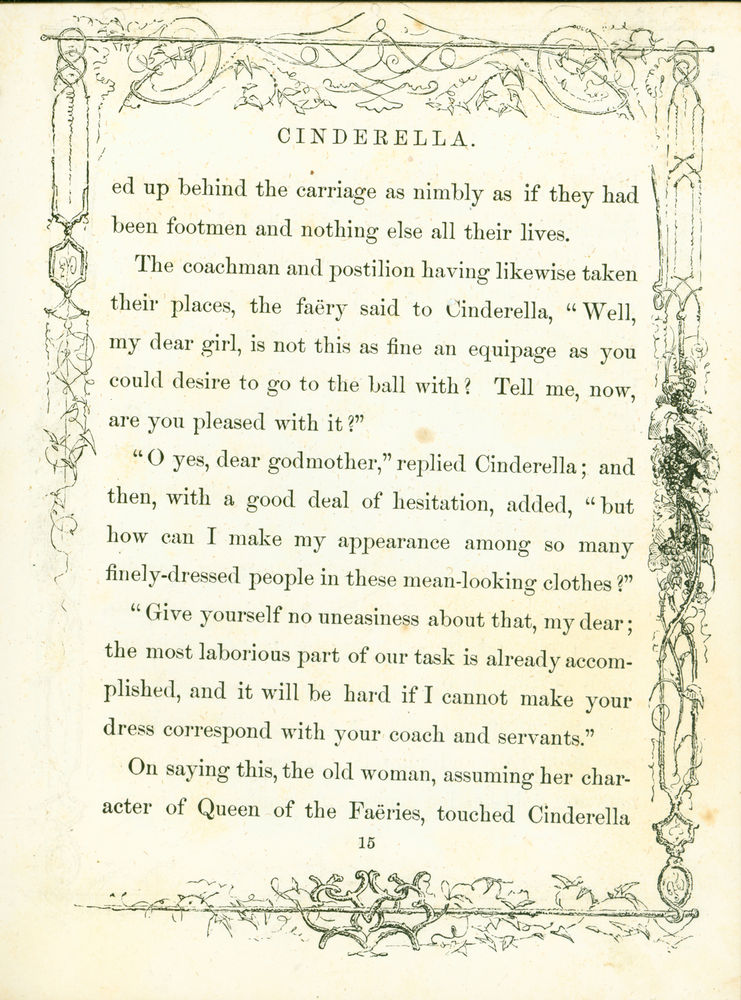 CINDERELLA.
ed up behind the carriage as nimbly as if they had
been footmen and nothing else all their lives.
The coachman and postilion having likewise taken
their places, the faëry said to Cinderella, “Well,
my dear girl, is not this as fine an equipage as you
could desire to go to the ball with? Tell me, now,
are you pleased with it?”
“O yes, dear godmother,” replied Cinderella; and
then, with a good deal of hesitation, added, “but
how can I make my appearance among so many
finely-dressed people in these mean-looking clothes?”
“Give yourself no uneasiness about that, my dear;
the most laborious part of our task is already accom-
plished, and it will be hard if I cannot make your
dress correspond with your coach and servants.”
On saying this, the old woman, assuming her char-
acter of Queen of the Faëries, touched Cinderella
15